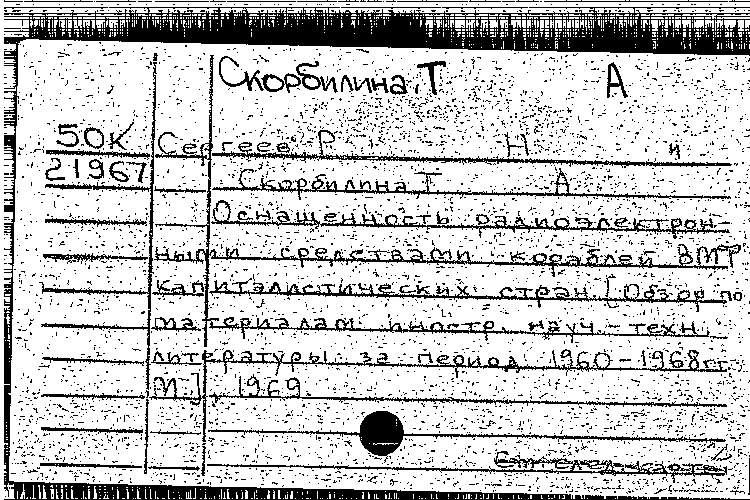 Скорбилина, Т А
50К Сергеев, Р Н и
21967 Скорбилина, Т А
Оснащенность радиоэлектрон-
ными средствами кораблей ВМФ
капиталистических стран. [Обзор по
материалам иностр. науч.-техн.
литературы за период 1960-1968гг
М.], 1969.
См. след. карт.